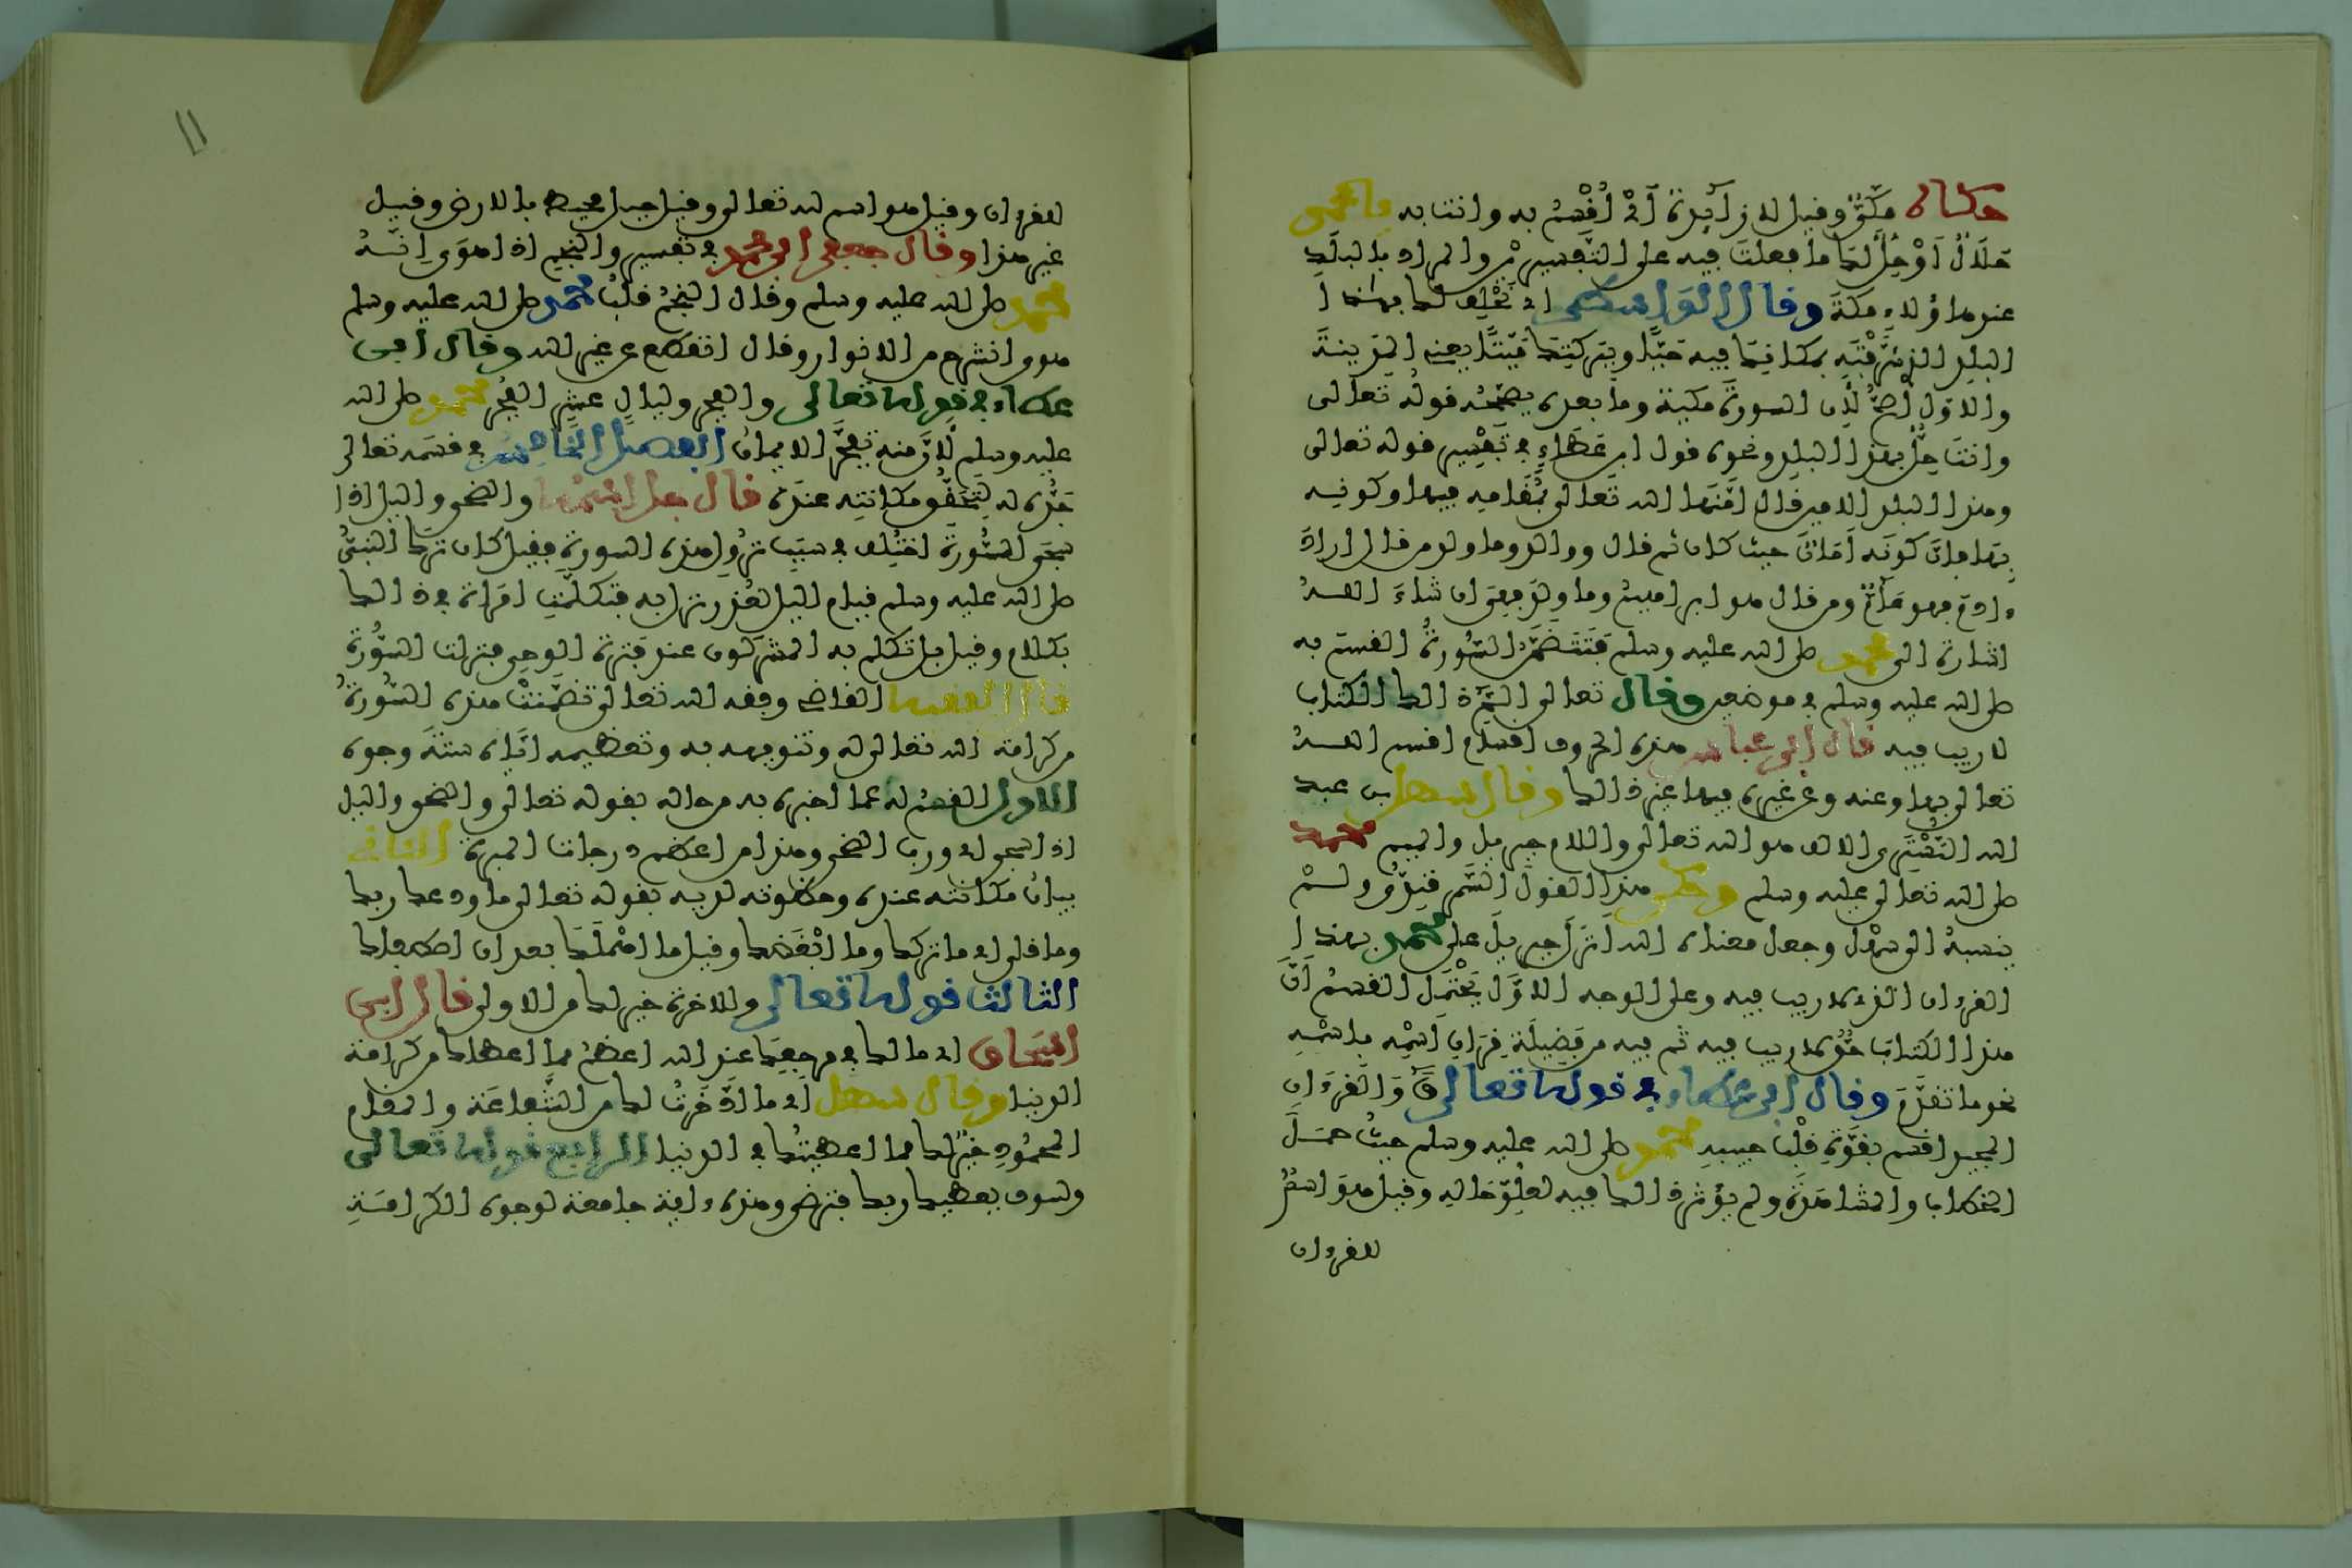 حكاه مكي وقيل لا زايدة اي اقسم به وانت به يا محمد
حلال او حل لك ما فعلت فيه على التفسيرين والمراد بالبلد
عند هاؤلاء مكة وقال الواسطي اي نحلف لك بهذا
البلد الذي شرفته بمكانك فيه حيا وببركتك ميتا يعني المدينة
والاول اصح لان السورة مكية وما بعده يصححه قوله تعالى
وانت حل بهذا البلد ونحوه قول ابن عطاء في تفسير قوله تعالى
وهذا البلد الامين قال امنها الله تعالى بمقامه فيها وكونه
بها فان كونه امان حيث كان ثم قال ووالد وما ولد من قال اراد
ءادم فهو عام ومن قال هو ابراهيم وما ولد فهي ان شاء الله
اشارة الى محمد صلى الله عليه وسلم فتتضمن السورة القسم به
صلى الله عليه وسلم في موضعين وقال تعالى الم ذالك الكتاب
لا ريب فيه قال ابن عباس هذه الحروف اقسام اقسم الله
تعالى بها وعنه وعن غيره فيها غير ذالك وقال سهل بن عبد
الله التستري الالف هو الله تعالى واللام جبريل والميم محمد
صلى الله تعالى عليه وسلم وحكى هذا القول السمرقندي ولم
ينسبه الى سهل وجعل معناه الله انزل جبريل على محمد بهذا
القرءان الذي لا ريب فيه وعلى الوجه الاول يحتمل القسم ان
هذا الكتاب حق لا ريب فيه ثم فيه من فضيلة قران اسمه باسمه
نحو ما تقدم وقال ابن عطاء في قوله تعالى ق والقرءان
المجيد اقسم بقوة قلب حبيبه محمد صلى الله عليه وسلم حيث حمل
الخطاب والمشاهدة ولم يؤثر ذالك فيه لعلو حاله وقيل هو اسم
للقرءان
للقرءان وقيل هو اسم لله تعالى وقيل جبل محيط بالارض وقيل
غير هذا وقال جعفر ابن محمد في تفسير والنجم اذا هوى انه
محمد صلى الله عليه وسلم وقال النجم قلب محمد صلى الله عليه وسلم
هوى انشرح من الانوار وقال انقطع عن غير الله وقال ابن
عطاء في قوله تعالى والفجر وليال عشر الفجر محمد صلى الله
عليه وسلم لان منه تفجر الايمان الفصل الخامس في قسمه تعالى
جده له لتحقق مكانته عنده قال جل اسمه والضحى واليل اذا
سجى السورة اختلف في سبب نزول هذه السورة فقيل كان ترك النبي
صلى الله عليه وسلم قيام اليل لعذر نزل به فتكلمت امراة في ذالك
بكلام وقيل بل تكلم به المشركون عند فترة الوحي فنزلت السورة
قال الفقيه القاضي وفقه الله تعالى تضمنت هذه السورة
من كرامة الله تعالى له وتنويهه به وتعظيمه اياه ستة وجوه
الاول القسم له عما اخبره به من حاله بقوله تعالى والضحى واليل
اذا سجى اي ورب الضحى وهذا من اعظم درجات المبرة الثاني
بيان مكانته عنده وحظوته لديه بقوله تعالى ما ودعك ربك
وما قلى اي ما تركك وما ابغضك وقيل ما اهملك بعد ان اصطفاك
الثالث قوله تعالى وللاخرة خير لك من الاولى قال ابن
اسحاق اي ما لك في مرجعك عند الله اعظم مما اعطاك من كرامة
الدنيا وقال سهل اي ما ادخرت لك من الشفاعة والمقام
المحمود خير لك مما اعطيتك في الدنيا الرابع قوله تعالى
ولسوف يعطيك ربك فترضى وهذه ءاية جامعة لوجوه الكرامة